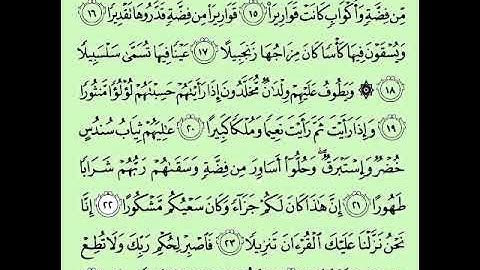 مِّن فِضَّةٍ وَأَكْوَابٍ كَانَتْ قَوَارِيرَا۠ ١٥ قَوَارِيرَا۟ مِن فِضَّةٍ قَدَّرُوهَا تَقْدِيرًا ١٦
وَيُسْقَوْنَ فِيهَا كَأْسًا كَانَ مِزَاجُهَا زَنجَبِيلًا ١٧ عَيْنًا فِيهَا تُسَمَّىٰ سَلْسَبِيلًا
١٨ ۞ وَيَطُوفُ عَلَيْهِمْ وِلْدَٰنٌ مُّخَلَّدُونَ إِذَا رَأَيْتَهُمْ حَسِبْتَهُمْ لُؤْلُؤًا مَّنثُورًا
١٩ وَإِذَا رَأَيْتَ ثَمَّ رَأَيْتَ نَعِيمًا وَمُلْكًا كَبِيرًا ٢٠ عَٰلِيَهُمْ ثِيَابُ سُندُسٍ
خُضْرٌ وَإِسْتَبْرَقٌ ۖ وَحُلُّوٓا۟ أَسَاوِرَ مِن فِضَّةٍ وَسَقَىٰهُمْ رَبُّهُمْ شَرَابًا
طَهُورًا ٢١ إِنَّ هَٰذَا كَانَ لَكُمْ جَزَآءً وَكَانَ سَعْيُكُم مَّشْكُورًا ٢٢ إِنَّا
نَحْنُ نَزَّلْنَا عَلَيْكَ ٱلْقُرْءَانَ تَنزِيلًا ٢٣ فَٱصْبِرْ لِحُكْمِ رَبِّكَ وَلَا تُطِعْ